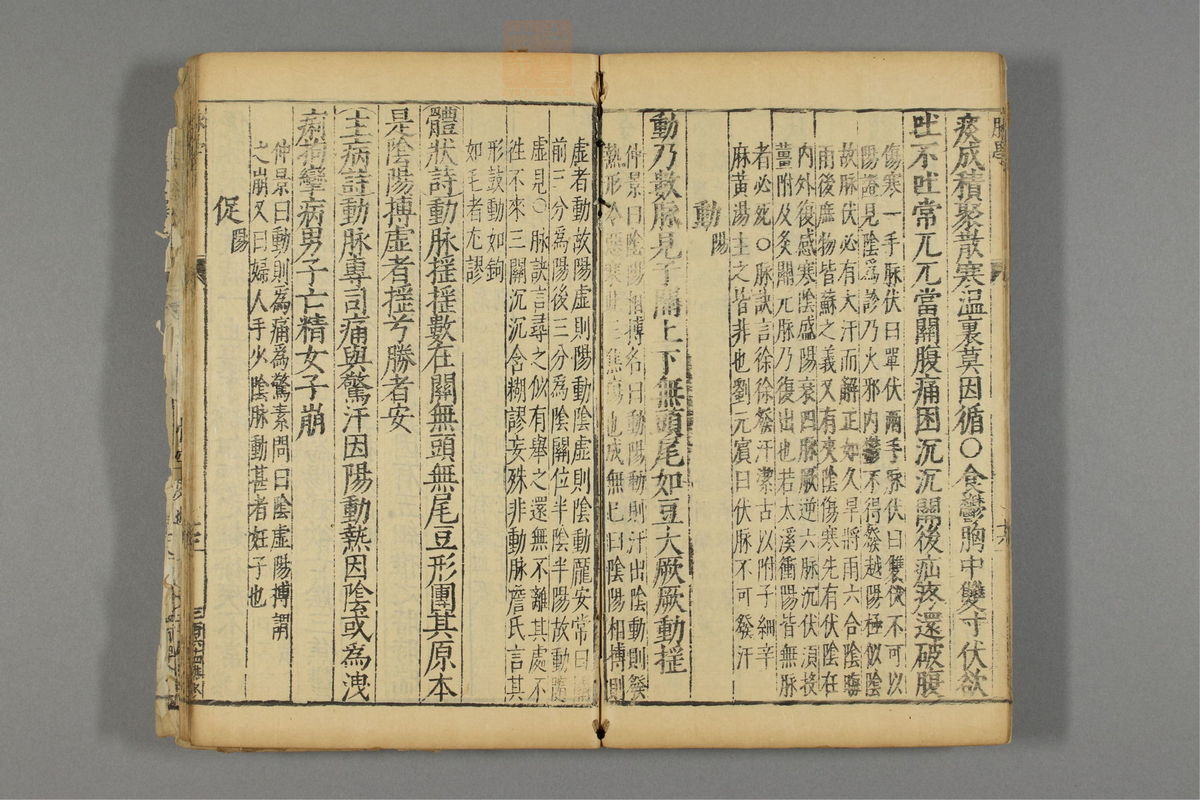 痰成積聚散寒溫裏莫因循〇食鬱胸中雙寸伏欲
吐不吐常兀兀當關腹痛困沉沉關後疝疼還破腹
傷寒一手脉伏曰單伏兩手脉伏曰雙伏不可以
陽證見陰爲診乃火邪內鬱不得發越陽極似陰
故脉伏必有大汗而解正如久旱將雨六合陰晦
雨後庶物皆蘇之義又有夾陰傷寒先有伏陰在
內外復感寒陰盛陽衰四肢厥逆六脉沉伏須投
薑附及灸關元脉乃復出也若太溪衝陽皆無脉
者必死〇脉訣言徐徐發汗潔古以附子細辛
麻黃湯主之皆非也劉元賓曰伏脉不可發汗
動陽
動乃數脉見于關上下無頭尾如豆大厥厥動搖
仲景曰陰陽相搏名曰動陽動則汗出陰動則發
熱形冷惡寒此三焦傷也成無已曰陰陽相搏則
虛者動故陽虛則陽動陰虛則陰動龐安常曰關
前三分爲陽後三分爲陰關位半陰半陽故動隨
虛見〇脉訣言尋之似有舉之還無不離其處不
徃不來三關沉沉含糊謬妄殊非動脉詹氏言其
形鼓動如鉤
如毛者尤謬
體狀詩動脉搖搖數在關無頭無尾豆形團其原本
是陰陽搏虛者搖兮勝者安
主病詩動脉專司痛與驚汗因陽動熱因陰或為洩
痢拘攣病男子亡精女子崩
仲景曰動則爲痛爲驚素問曰陰虛陽搏謂
之崩又曰婦人手少陰脉動甚者妊子也
促陽